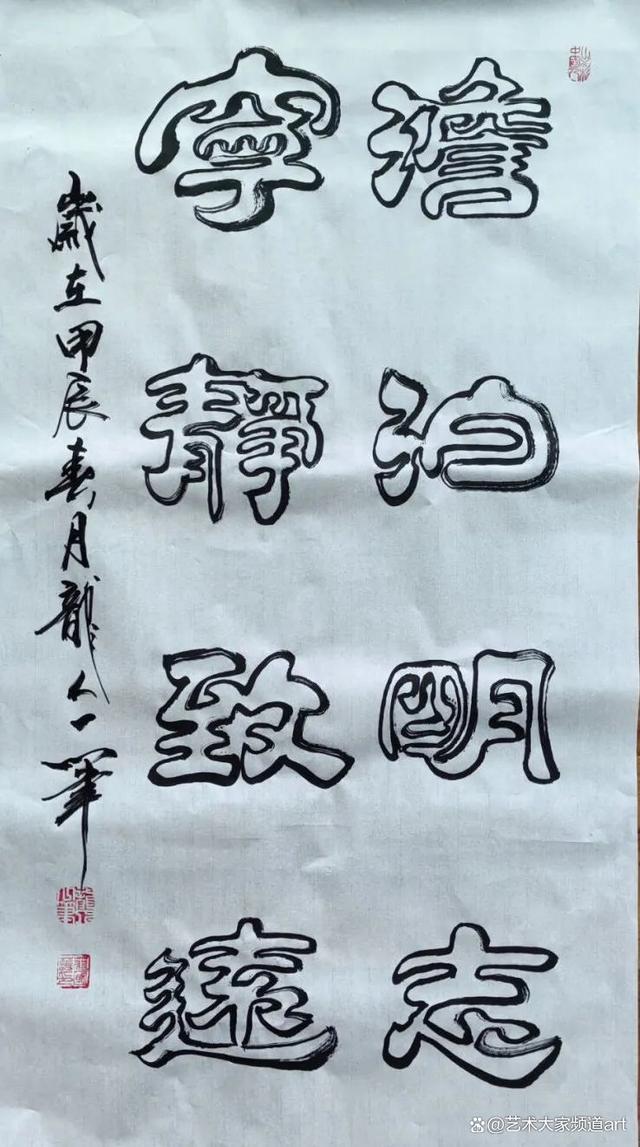 澹泊明志
寧靜致遠
歲在甲辰春月龍人一筆
@艺术大家频道art